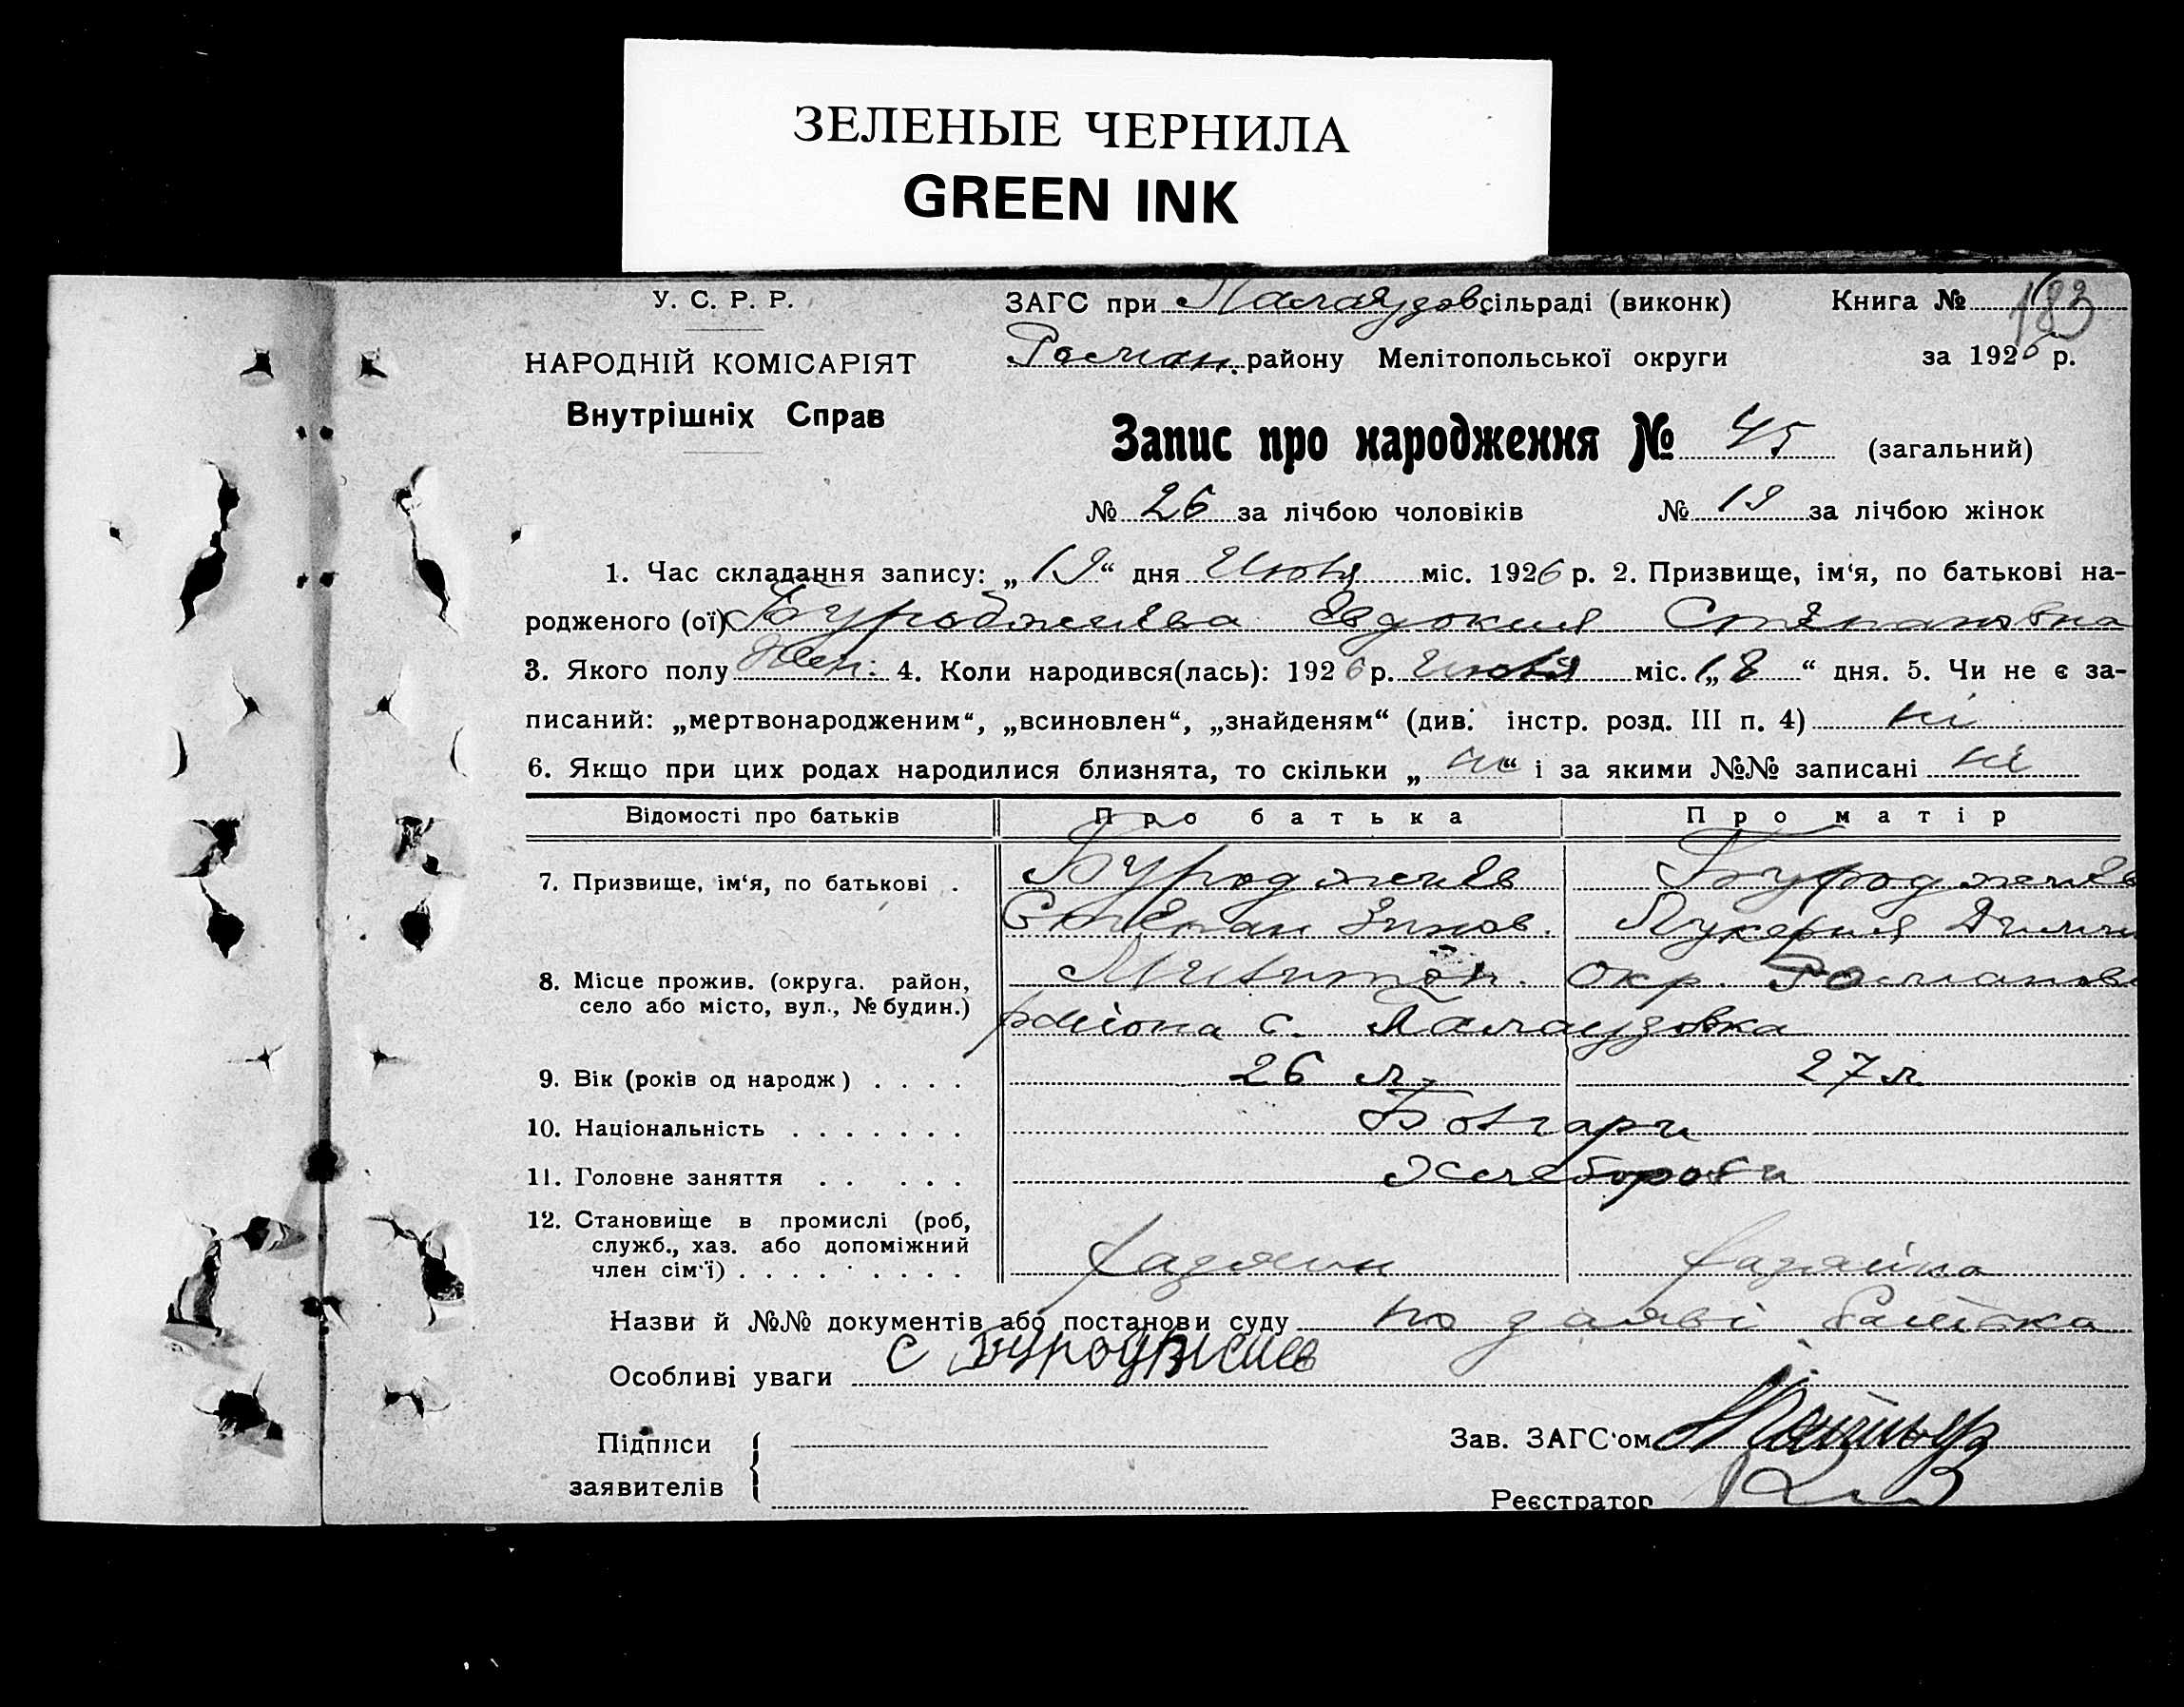 ЗЕЛЕНЫЕ ЧЕРНИЛА
GREEN INK
У. С. Р. Р.
НАРОДНІЙ КОМІСАРІЯТ
Внутрішніх Справ
ЗАГС при Палаузов. сільраді (виконк) Книга № 183
Роман. району Мелітопольської округи за 1926 р.
Запис про народження № 45 (загальний)
№ 26 за лічбою чоловіків № 19 за лічбою жінок
1. Час складання запису: „19“ дня Июля міс. 1926 р. 2. Призвище, ім‘я, по батькові на-
родженого (ої) Буроджиева Евдокия Степановна
3. Якого полу Жен. 4. Коли народився(лась): 1926 р. Июля міс. „18“ дня. 5. Чи не є за-
писаний: „мертвонародженим“, „всиновлен“, „знайденям“ (див. інстр. розд. III п. 4) ні
6. Якщо при цих родах народилися близнята, то скільки „ні“ і за якими №№ записані ні
Відомості про батьків Про батька Про матір
7. Призвище, ім‘я, по батькові . Буроджиев Буроджиев
Степан Зинов. Лукерия
8. Місце прожив. (округа. район, Мелитоп. Окр. Романовс
село або місто, вул., № будин.) района с. Палаузовка
9. Вік (років од народж) . . . . 26 л. 27 л
10. Національність . . . . . . . Болгари
11. Головне заняття . . . . . Хлебороби
12. Становище в промислі (роб,
служб., хаз. або допоміжний
член сім‘ї) . . . . . . . . . хазяин хазяйка
Назви й №№ документів або постанови суду по заяві батька
Особливі уваги С Буроджиев
Підписи
заявителів
Зав. ЗАГС‘ом
Реєстратор